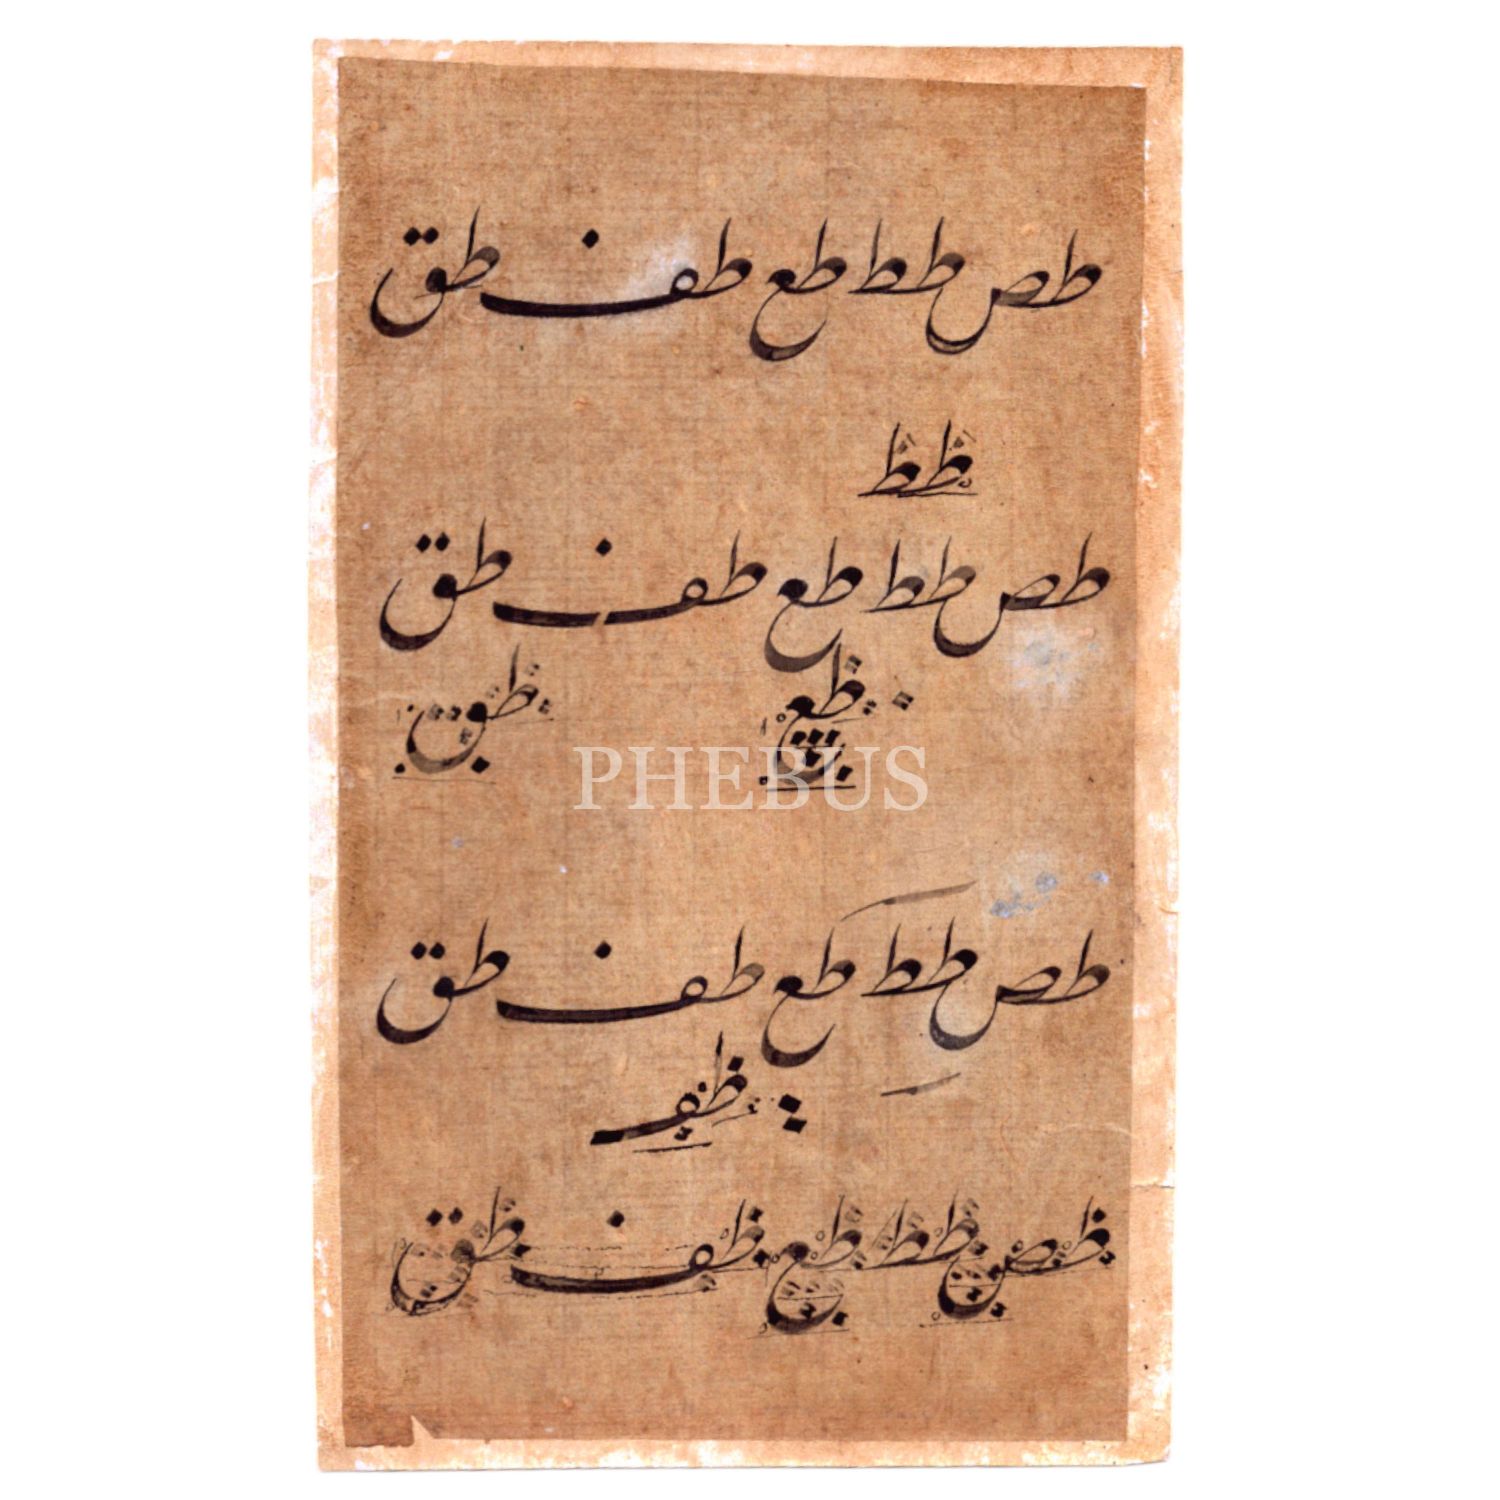 طص طط طع طف طق
طط
طص طط طع طف طق
طع طق
PHEBUS
طص طط طع طف طق
طف
طص طط طع طف طق